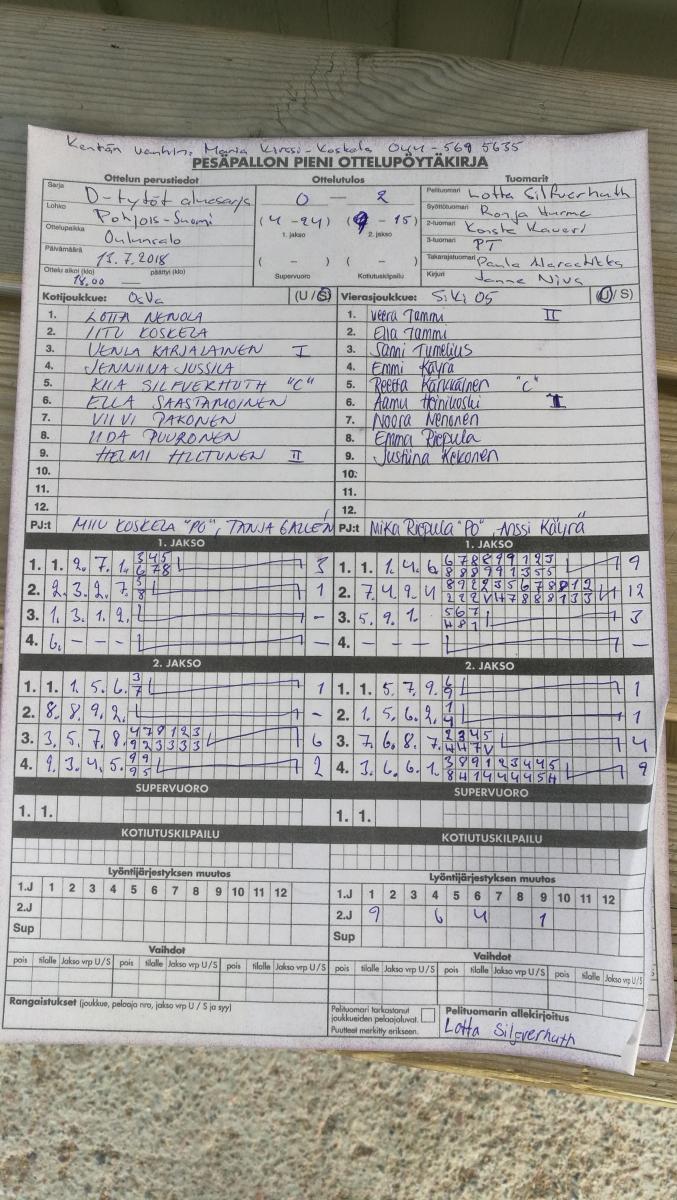 Kentän vanhin, Maria Kirssi-Koskela 044-569 5635
PESÄPALLON PIENI OTTELUPÖYTÄKIRJA
Ottelun perustiedot Ottelutulos Tuomarit
Sarja D-tytöt aluesarja 0 — 2 Pelituomari Lotta Silfverhuth
Lohko Pohjois-Suomi (4 - 24) ( - 15) Syöttötuomari Ronja Hurme
Ottelupaikka Oulunsalo 1. jakso 2. jakso 2-tuomari
Päivämäärä 13.7.2018 ( - ) ( - ) 3-tuomari PT
Takarajatuomari Paula
Ottelu alkoi (klo) 18.00 päättyi (klo) Supervuoro Kotiutuskilpailu Kirjuri Janne Niva
Kotijoukkue: OuVa (U / S) Vierasjoukkue: SiKi 05 (U / S)
1. LOTTA NENOLA 1. Veera Tammi II
2. IITU KOSKELA 2. Ella Tammi
3. VENLA KARJALAINEN I 3. Sanni Tumelius
4. JENNIINA JUSSILA 4. Emmi Käyrä
5. KIIA SILFVERHUTH "C" 5. Reetta Kärkkäinen "C"
6. ELLA SAASTAMOINEN 6. Aamu Heinikoski I
7. VIIVI PAKONEN 7. Noora Nenonen
8. IIDA PUURONEN 8. Emma Riepula
9. HELMI HILTUNEN II 9. Justiina Kekonen
10. 10.
11. 11.
12. 12.
PJ:t MIIU KOSKELA "PO", TANJA GALLEN PJ:t Mika Riepula "PO", Anssi Käyrä
1. JAKSO 1. JAKSO
1. 1. 2. 7. 1. 345 3 1. 1. 1. 4. 6 678899123 9
678 888991355
2. 2. 3. 2. 7. 5 1 2. 7. 4. 9. 4 12
8
3. 1. 3. 1. 2. – 3. 5. 9. 1. 567 3
481
4. 6. – – – – 4. – – – –
2. JAKSO 2. JAKSO
1. 1. 1. 5. 6. 3 1 1. 1. 5. 7. 9. 6 1
7 9
2. 8. 8. 9. 2. – 2. 1. 5. 6. 2. 1 1
4
3. 3. 5. 7. 8. 478123 6 3. 7. 6. 8. 7. 2345 4
923333 447V
4. 9. 3. 4. 5. 99 2 4. 3. 6. 6. 1. 389123445 9
95
SUPERVUORO SUPERVUORO
1. 1. 1. 1.
KOTIUTUSKILPAILU KOTIUTUSKILPAILU
Lyöntijärjestyksen muutos Lyöntijärjestyksen muutos
1.J 1 2 3 4 5 6 7 8 9 10 11 12 1.J 1 2 3 4 5 6 7 8 9 10 11 12
2.J 2.J 9 6 4 1
Sup Sup
Vaihdot Vaihdot
pois tilalle Jakso vrp U/S pois tilalle Jakso vrp U/S pois tilalle Jakso vrp U/S pois tilalle Jakso vrp U/S pois tilalle Jakso vrp U/S pois tilalle Jakso vrp U/S
Rangaistukset (joukkue, pelaaja nro, jakso vrp U / S ja syy) Pelituomari tarkastanut Pelituomarin allekirjoitus
joukkueiden pelaajaluvat.
Puutteet merkitty erikseen. Lotta Silfverhuth